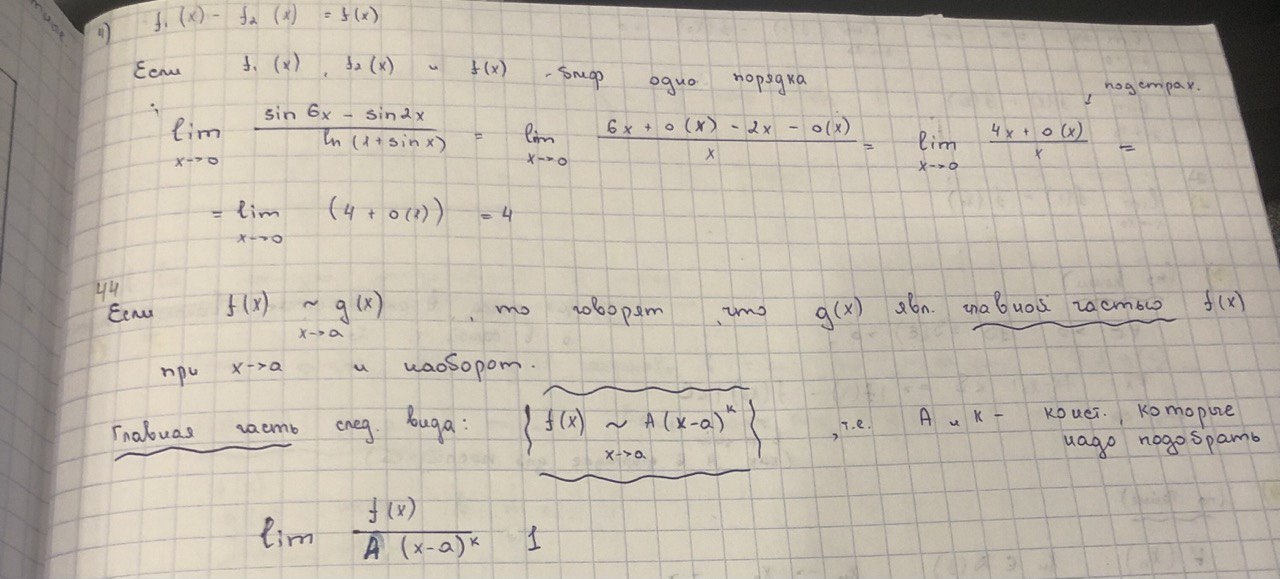 4) f₁(x) - f₂(x) = f(x)
Если f₁(x), f₂(x) и f(x) - бмф одно порядка
, подстрах.
lim x→0 (sin 6x - sin 2x)/(ln(1+sin x)) = lim x→0 (6x + o(x) - 2x - o(x))/x = lim x→0 (4x + o(x))/x =
= lim x→0 (4 + o(1)) = 4
44
Если f(x) ~ g(x) x→a, то говорят, что g(x) явл. главной частью f(x)
при x→a и наоборот.
Главная часть след. вида: { f(x) ~ A(x-a)ᵏ x→a }, т.е. A и к - конст. которые
надо подобрать
lim f(x)/(A (x-a)ᵏ) 1